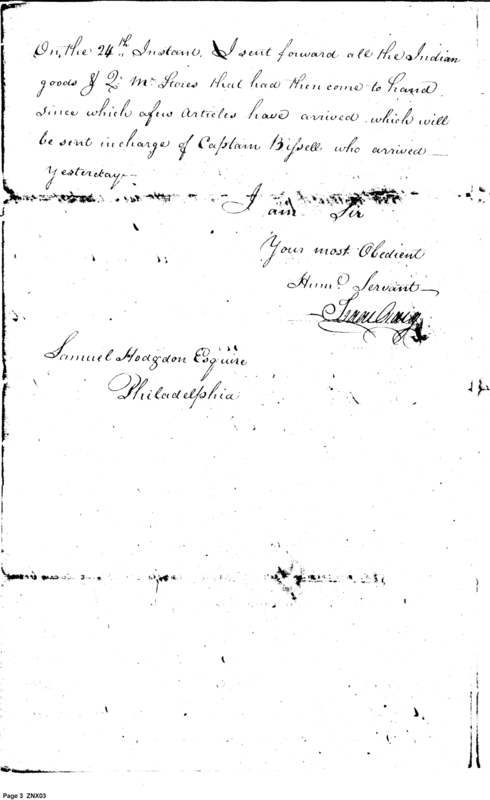 On the 24th Instant. I sent forward all the Indian
goods & Q. Mr. Stores that had then come to hand.
since which afew Articles have arrived which will
be sent in charge of Captam Bissell who arrived —
yesterday —
I am Sir
Your most Obedient
Humo. Servant —
Isaac Craig
Samuel Hodgdon Esquire
Philadelphia
Page 3 ZNX03